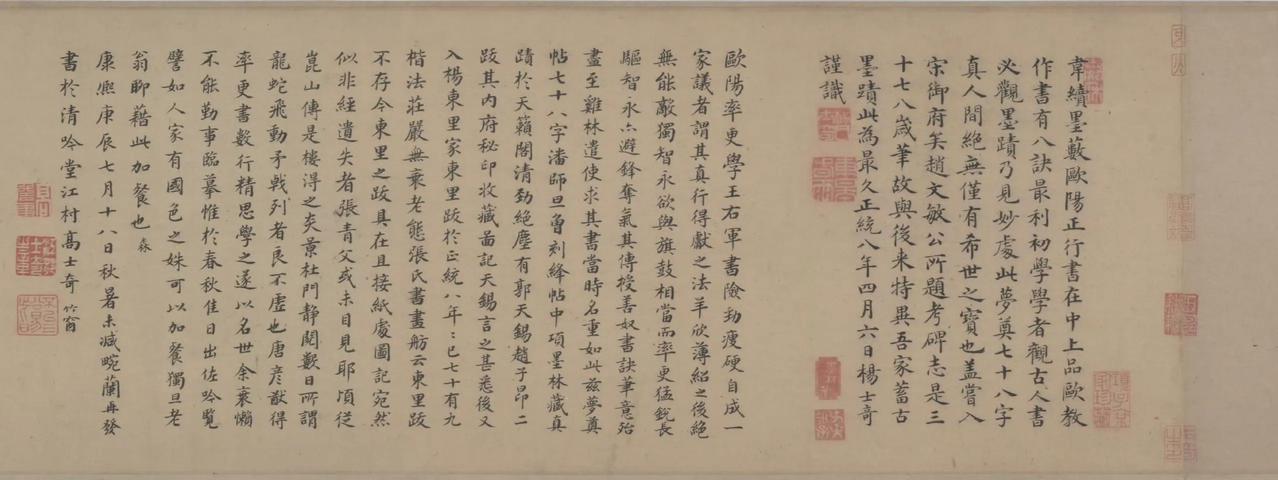 韋續墨藪歐陽正行書在中上品歐教
作書有八訣最利初學學者觀古人書
必觀墨蹟乃見妙處此夢奠七十八字
真人間絕無僅有希世之寶也蓋嘗入
宋御府矣趙文敏公所題考碑志是三
十七八歲筆故與後来特異吾家蓄古
墨蹟此為最久正統八年四月六日楊士奇
謹識
歐陽率更學王右軍書險勁瘦硬自成一
家議者謂其真行得獻之法羊欣薄紹之後絕
無能敵獨智永欲與旗鼓相當而率更猛銳長
驅智永亦避鋒奪氣其傳授善奴書訣筆意殆
盡至雞林遣使求其書當時名重如此茲夢奠
帖七十八字潘師旦曾刻絳帖中項墨林藏真
蹟於天籟閣清勁絕塵有郭天錫趙子昂二
跋其內府秘印收藏啚記天錫言之甚悉後又
入楊東里家東里跋於正統八年年已七十有九
楷法莊嚴無衰老態張氏書畫舫云東里跋
不存今東里之跋具在且接紙處圖記宛然
似非經遺失者張青父或未目見耶頃從
崑山傳是樓得之炎景杜門靜閱數日所謂
龍蛇飛動矛戟列者良不虛也唐彥猷得
率更書數行精思學之遂以名世余衰懶
不能勤事臨摹惟於春秋佳日出佐吟覽
譬如人家有國色之姝可以加餐獨旦老
翁聊藉此加餐也 森
康熙庚辰七月十八日秋暑未减晼蘭再發
書於清吟堂江村高士奇 竹窗